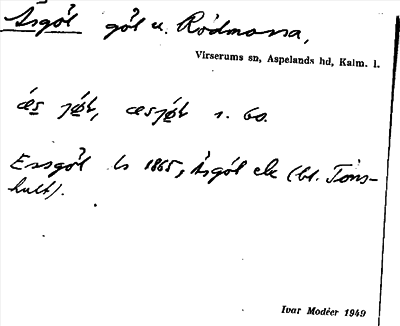 Åsgöl göl u. Rödmossa,
Virserums sn, Aspelands hd, Kalm. l.
s. 60.
Essgöl ls 1865, Åsgöl ek (bl. Töns-
hult).
Ivar Modéer 1949